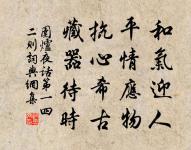 和氣迎人
平情應物
抗心希古
藏器待時
圍爐夜話第一四
二則詞典網集